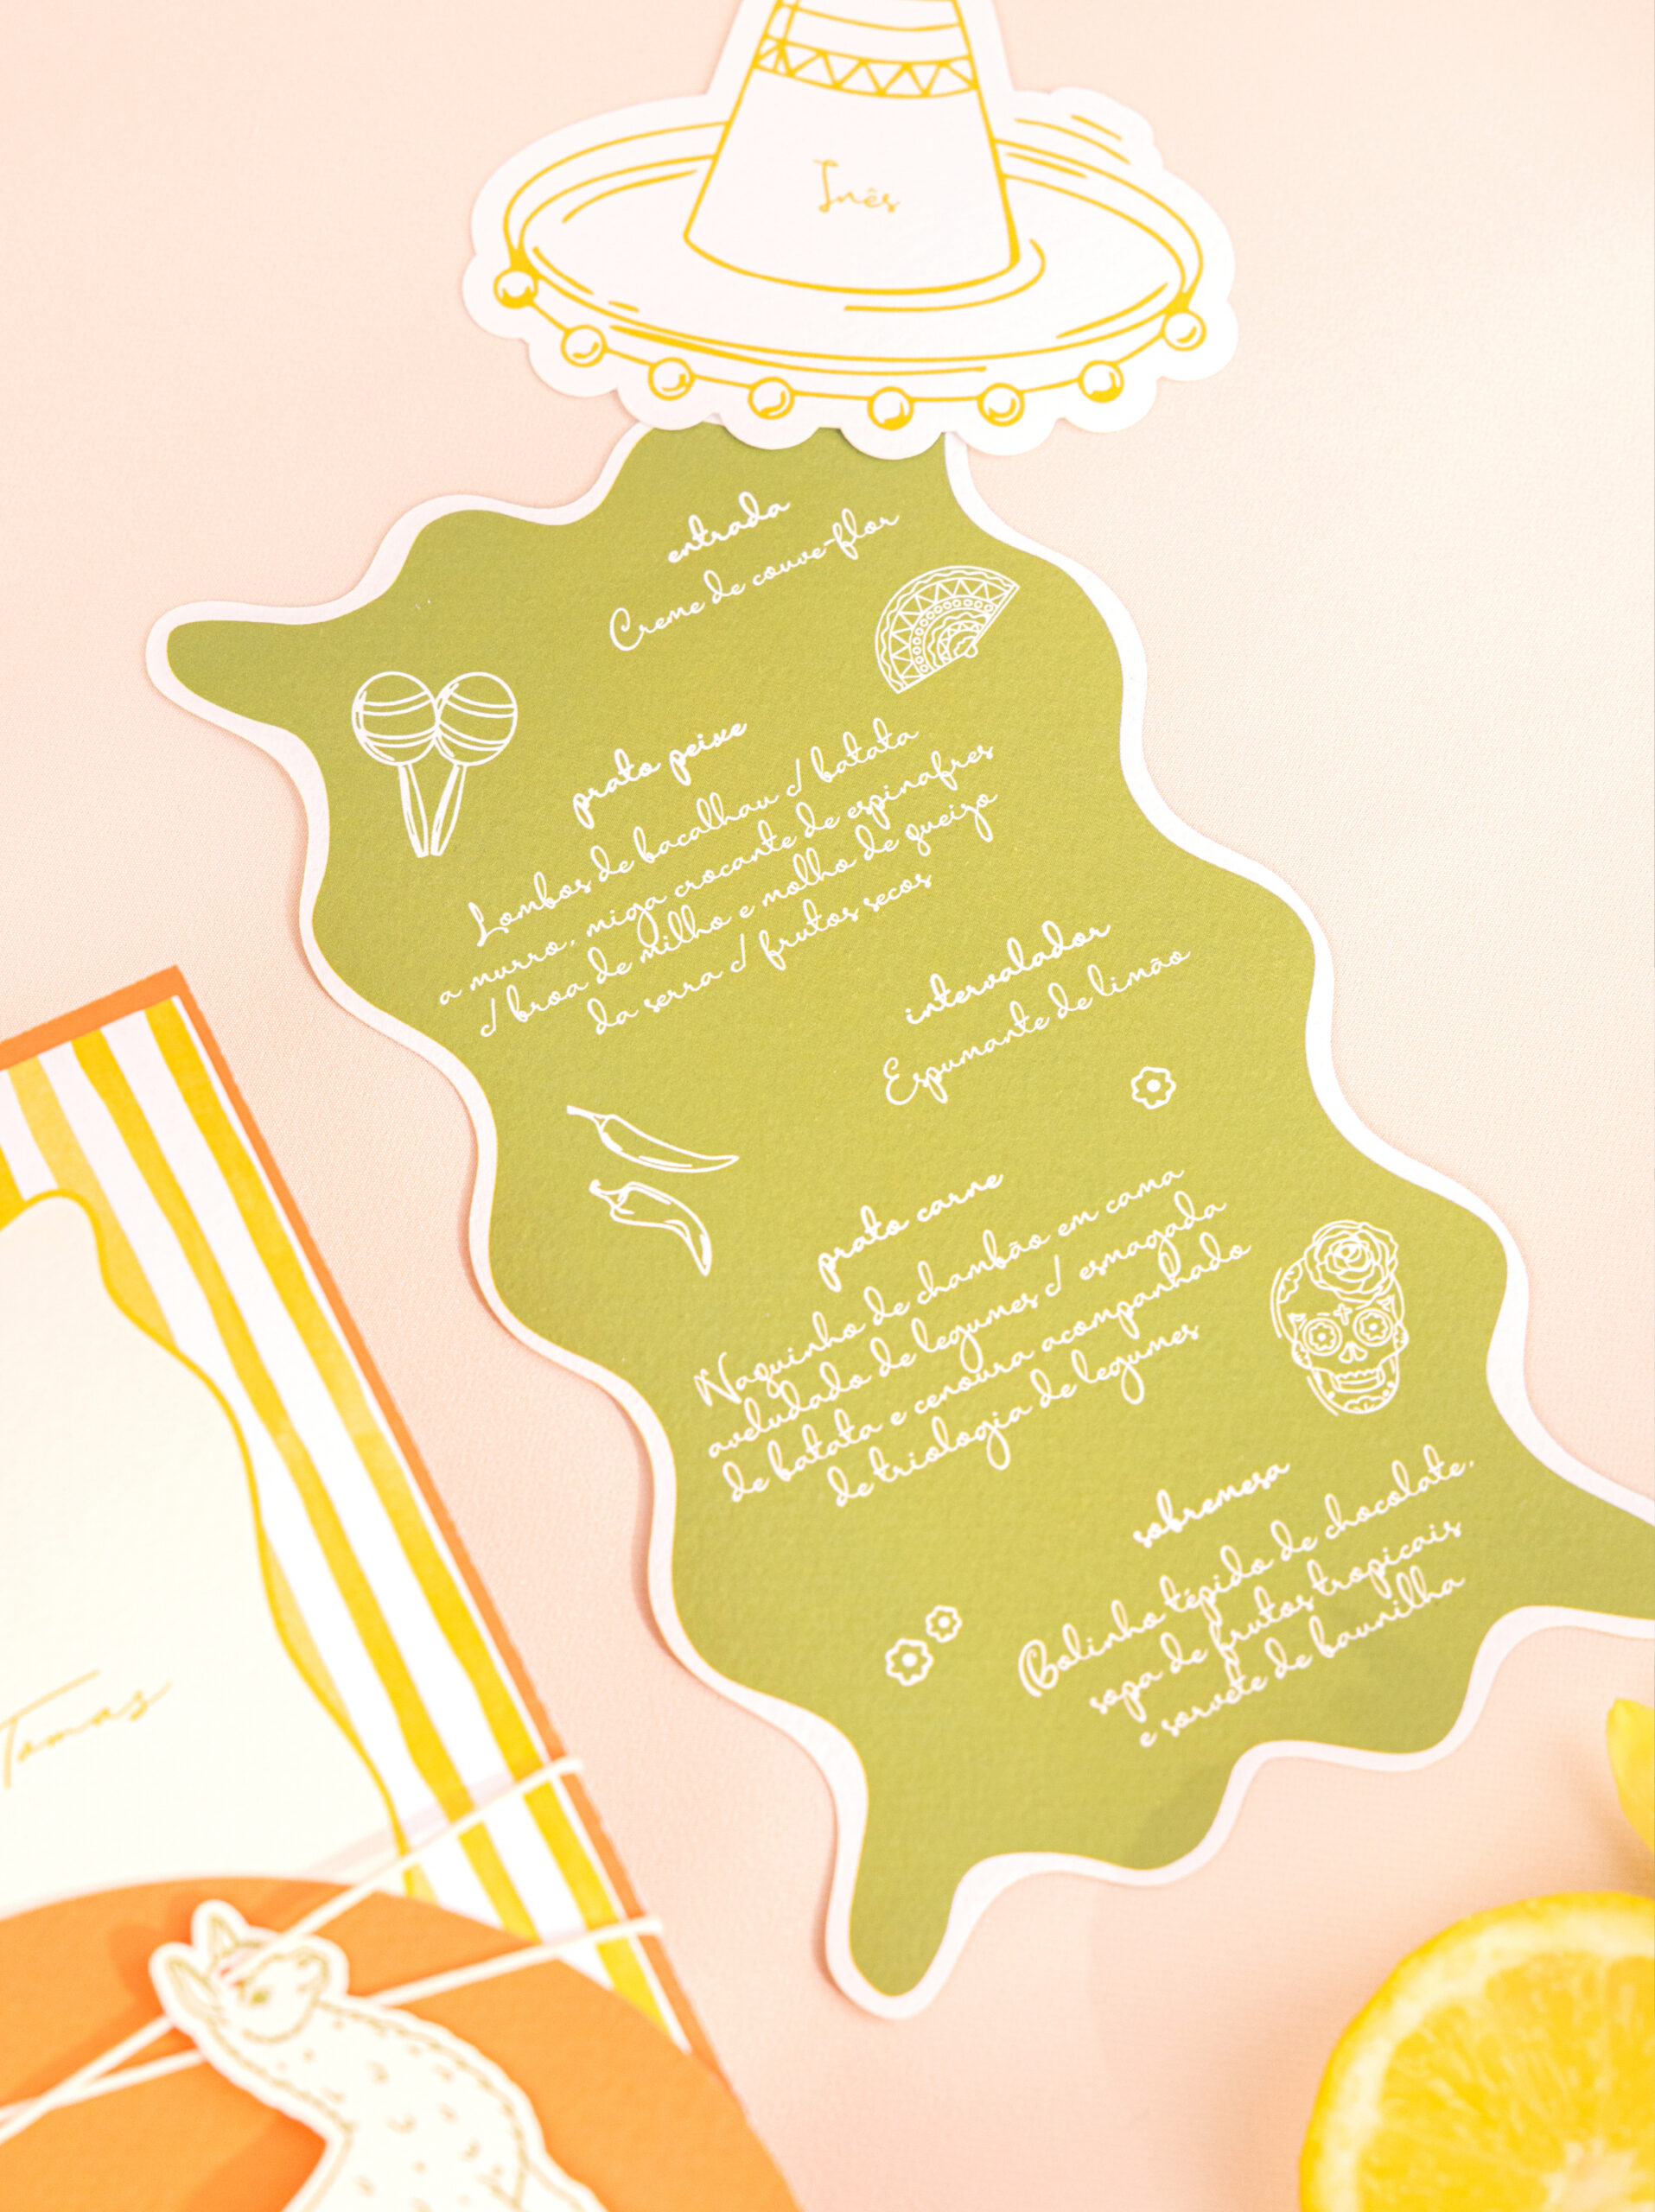 Inês
entrada
Creme de couve-flor
prato peixe
Lombos de bacalhau c/ batata
a murro, miga crocante de espinafres
c/ broa de milho e molho de queijo
da serra c/ frutos secos
intervalador
Espumante de limão
prato carne
Naquinho de chambão em cama
aveludado de legumes c/ esmagada
de batata e cenoura acompanhado
de triologia de legumes
sobremesa
Bolinho tépido de chocolate,
sopa de frutos tropicais
e sorvete de baunilha
Tomas